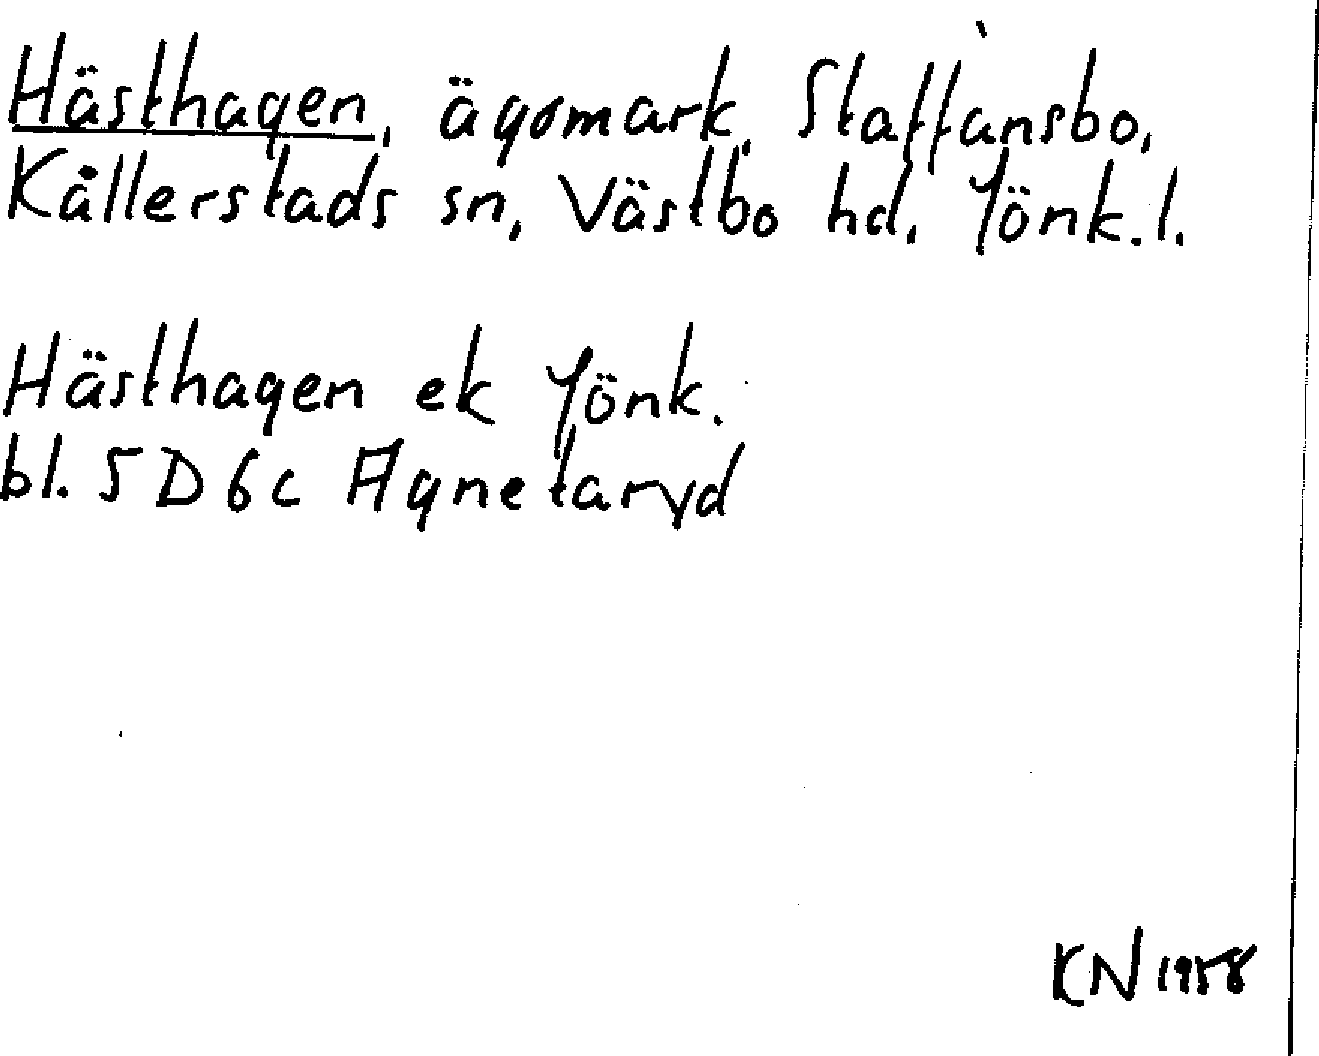 Hästhagen, ägomark, Staffansbo,
Kållerstads sn, Västbo hd, Jönk.l.
Hästhagen ek Jönk.
bl. 5D6c Agnetaryd
KN 1958